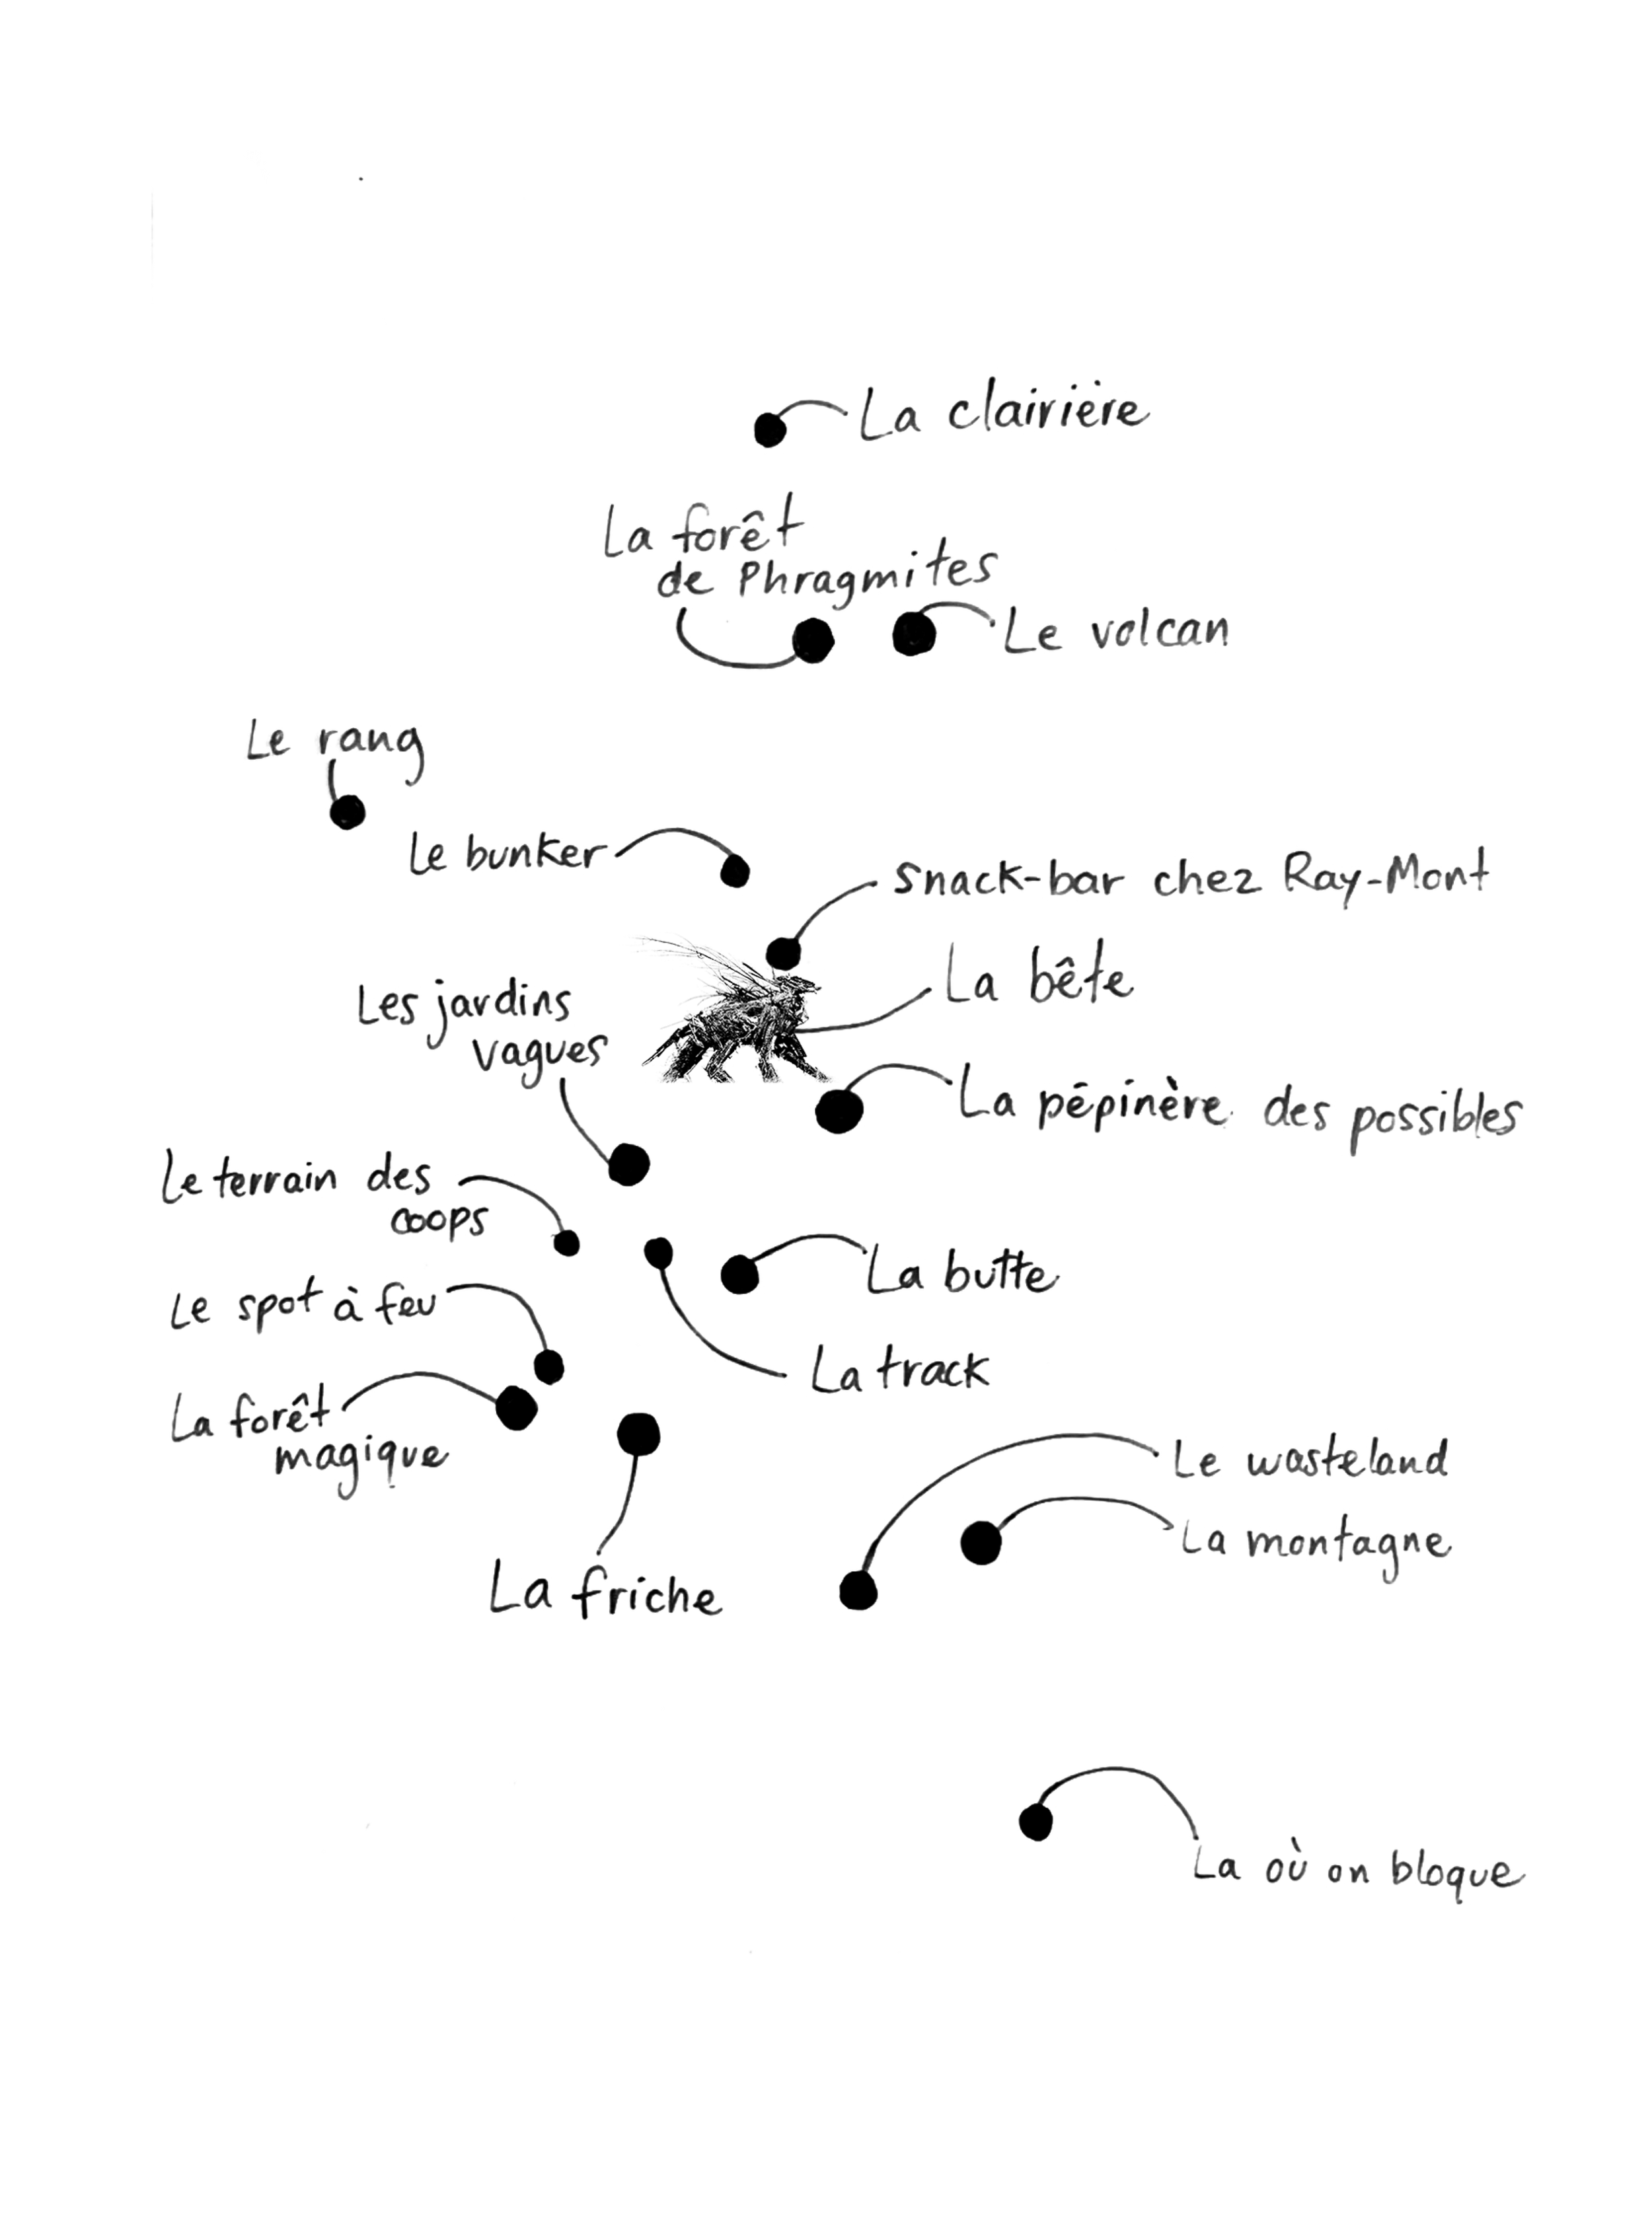 La clairière
La forêt
de Phragmites
Le volcan
Le rang
Le bunker
Snack-bar chez Ray-Mont
La bête
Les jardins
vagues
La pépinère des possibles
Le terrain des
coops
La butte
Le spot à feu
La track
La forêt
magique
Le wasteland
La montagne
La friche
La où on bloque